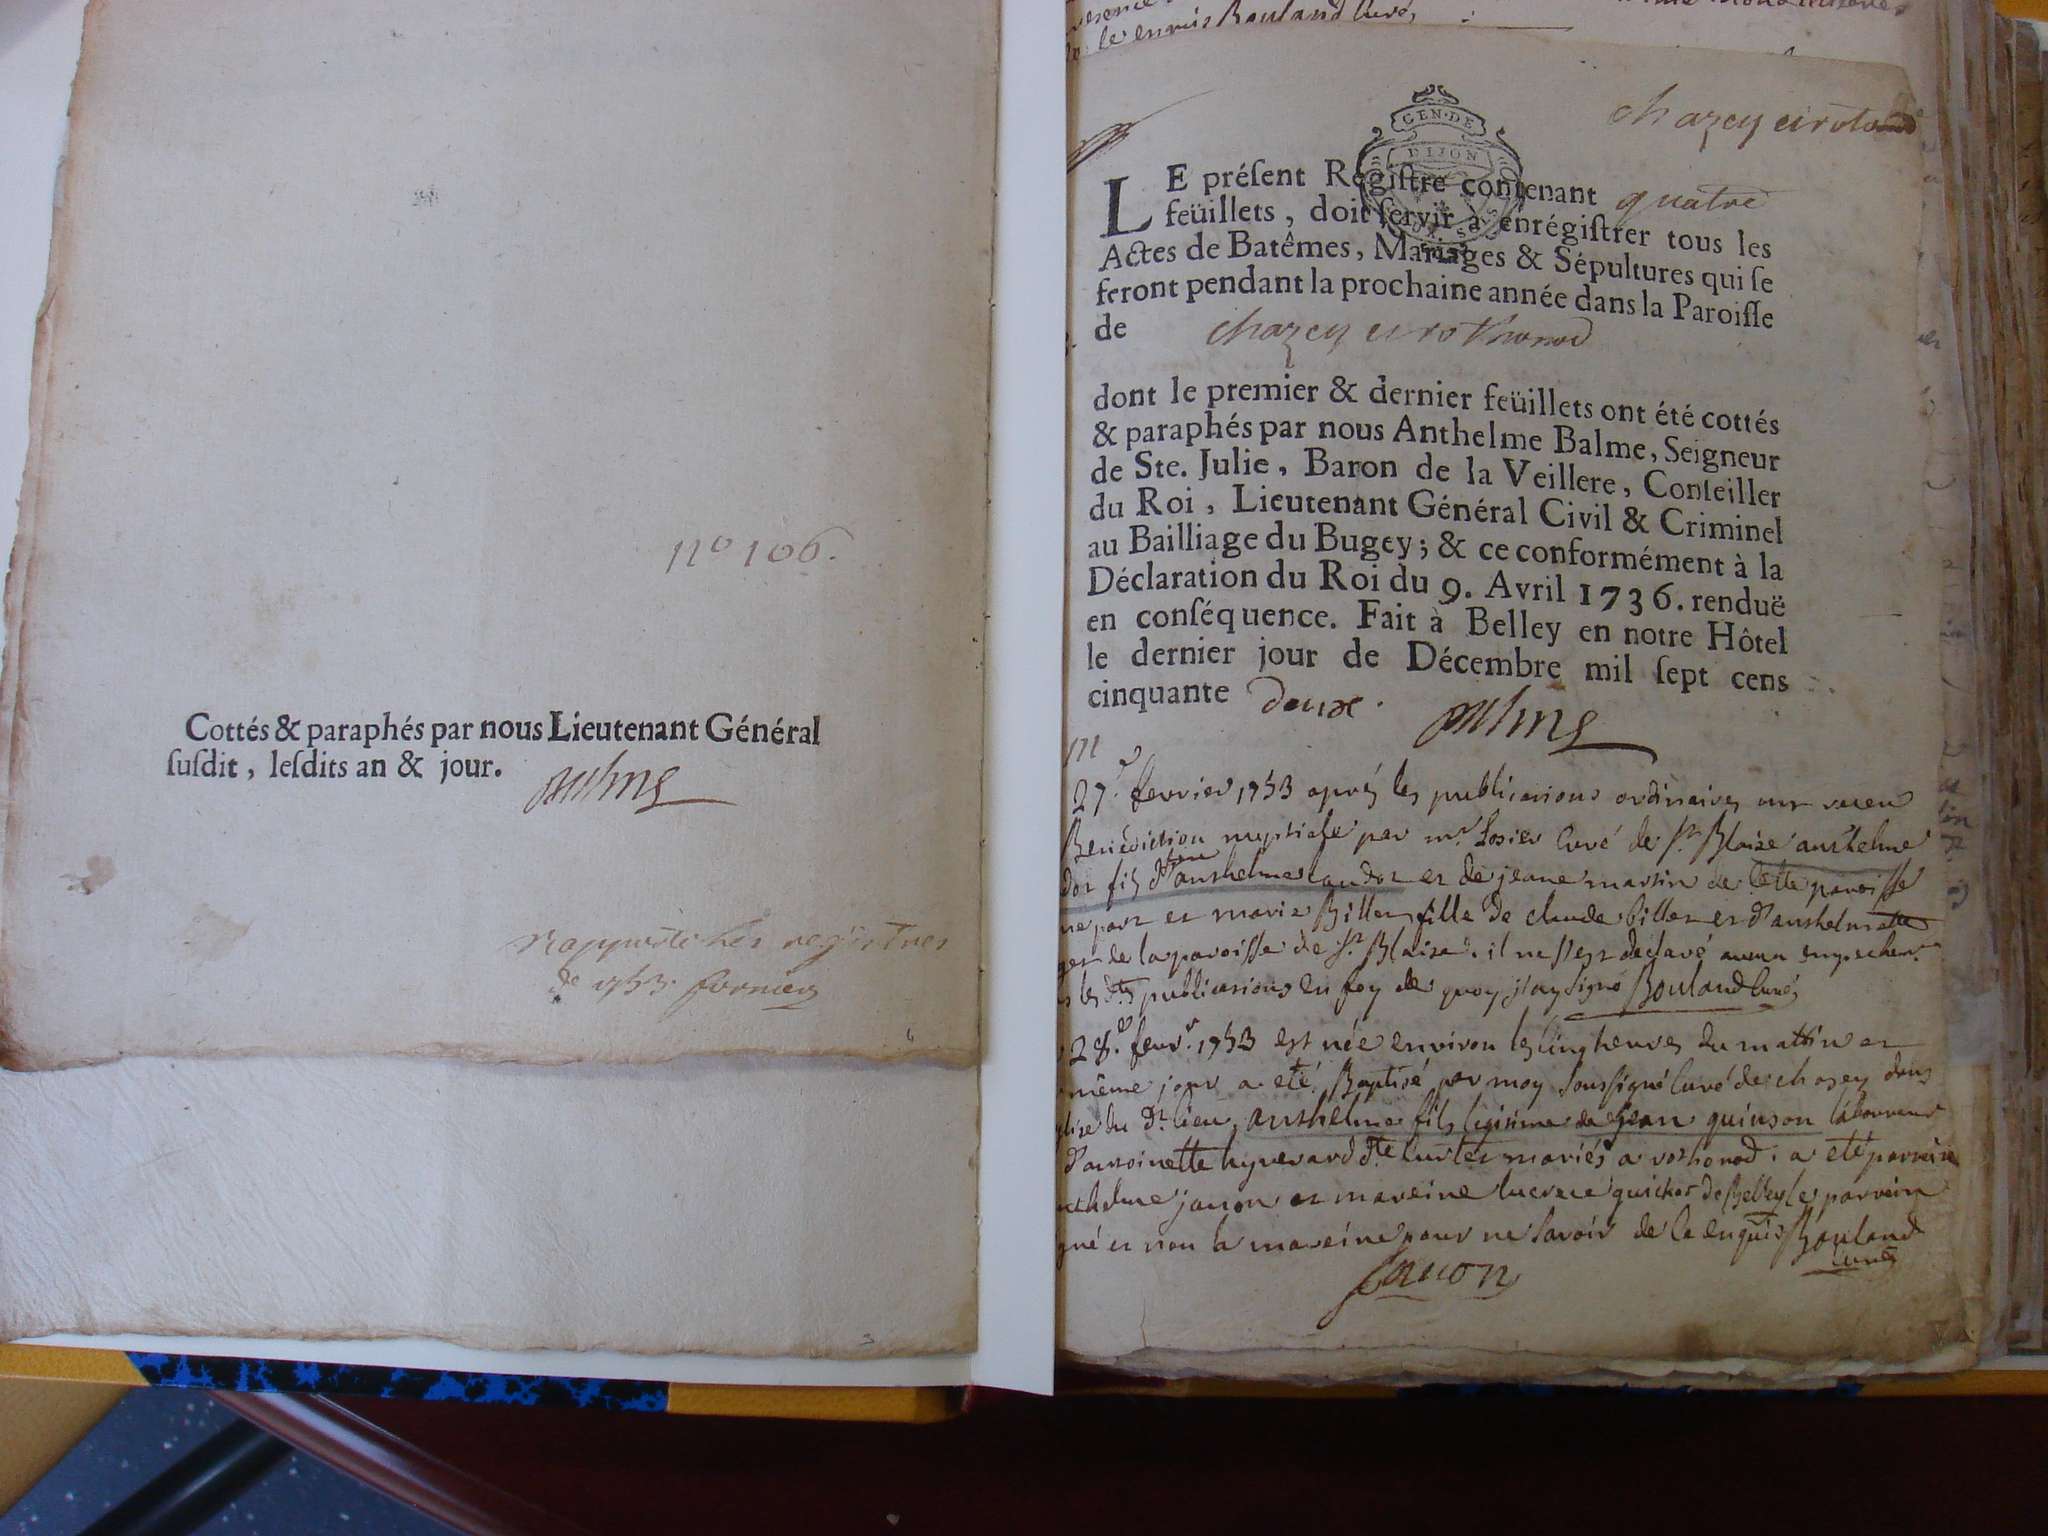 nº 106.
Cottés & paraphés par nous Lieutenant Général
susdit, lesdits an & jour. Balme
rapporté les registres
de 1753. fornier
le enquis Bouland Curé
chazey et rothonod
GEN·DE
DIJON
LE présent Registre contenant quatre
feüillets, doit servir à enrégistrer tous les
Actes de Batêmes, Mariages & Sépultures qui se
feront pendant la prochaine année dans la Paroisse
de chazey et rothonod
dont le premier & dernier feüillets ont été cottés
& paraphés par nous Anthelme Balme, Seigneur
de Ste. Julie, Baron de la Veillere, Conseiller
du Roi, Lieutenant Général Civil & Criminel
au Bailliage du Bugey; & ce conformément à la
Déclaration du Roi du 9. Avril 1736. renduë
en conséquence. Fait à Belley en notre Hôtel
le dernier jour de Décembre mil sept cens
cinquante deux. Balme
m
27e. fevrier 1753 aprés les publications ordinaires ont receu
Benediction nuptiale par mr. Curé de St. Blaise anthelme
fils d'anthelme et de jeane martin de cette paroisse
part et marie Billet fille de claude billet et d'anthelmette
de la paroisse de St. Blaise. il ne s'est declaré aucun empechemt.
les dtes publications en foy de quoy j'ay signé Bouland Curé
28e. fevr. 1753 est née environ les cinq heures du mattin et
même jour a eté Baptisé par moy soussigné Curé de chasey dans
du dt. lieu, anthelme fils legitime de jean quinson laboureur
d'antoinette hyverard dte mariés a rothonod. a eté parrein
anthelme janon et mareine lucrece de Belley le parrein
et non la mareine pour ne savoir de ce enquis Bouland
curé
Janon